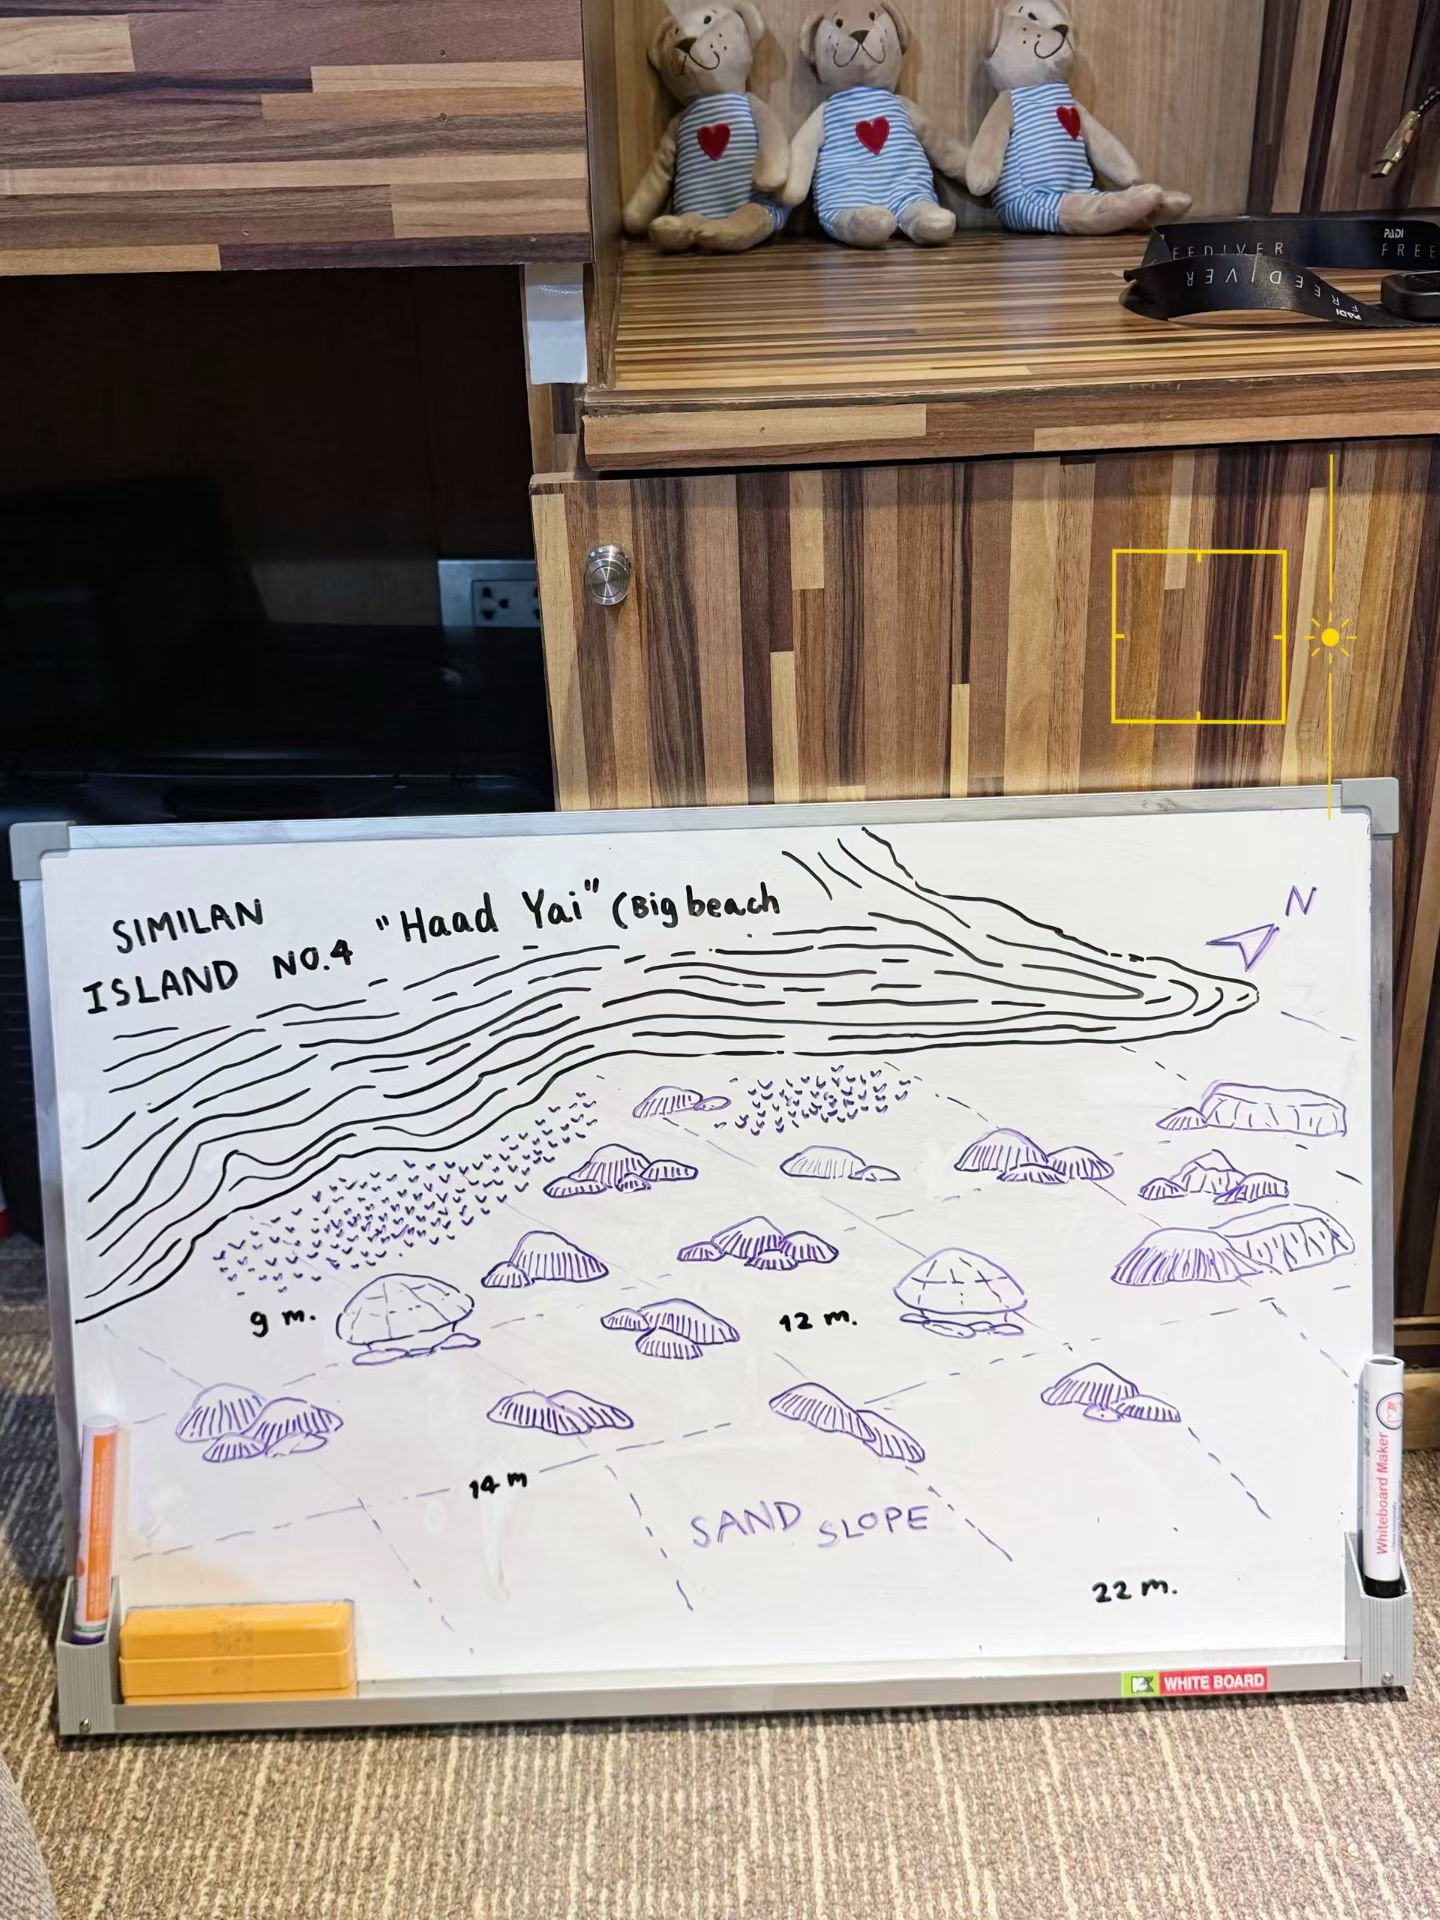 EEDIVER
PADI
FREE
FREEDIVER
PADI
SIMILAN
ISLAND NO.4
"Haad Yai" (Big beach
N
9 m.
12 m.
14 m
SAND SLOPE
22 m.
Whiteboard Maker
WHITE BOARD